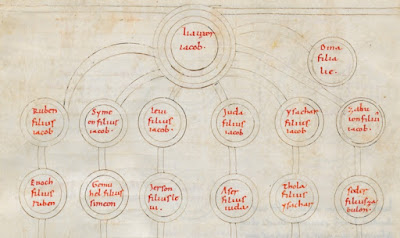 lia uxor
iacob.
Dina
filia
lie.
Ruben
filius
iacob
Syme
on filius
iacob.
Leui
filius
iacob
Juda
filius
iacob
ysachar
filius
iacob
Zabu
lon filiu
iacob.
Enoch
filius
ruben
Gemu
hel filius
simeon
Jerson
filius le
ui.
filius
iuda.
Thola
filius
ysachar
filius za
bulon.